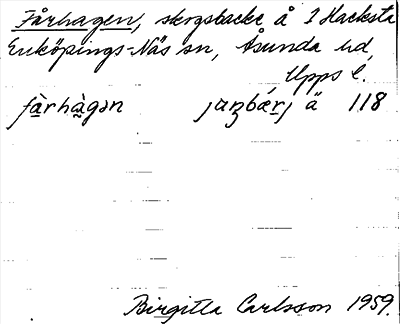 Fårhagen, skogsbacke å 1 Hacksta
Enköpings-Näs sn, Åsunda hd,
Upps l.
fàrhàgən ä 118
Birgitta Carlsson 1959.